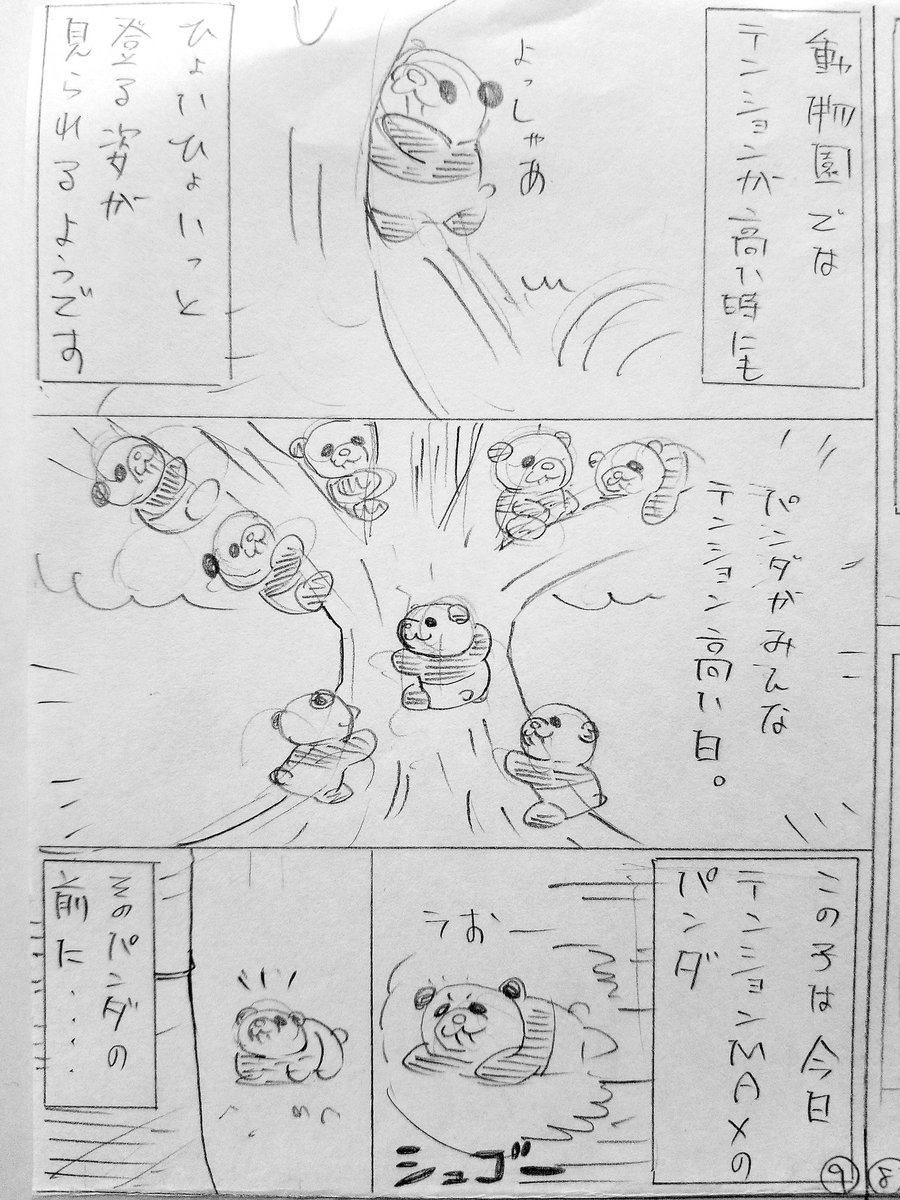 動物園では
テンションが高い時にも
よっしゃあ
ひょいひょいっと
登る姿が
見られるようです
パンダがみんな
テンション高い日。
この子は今日
テンションMAXの
パンダ
うおー
シュゴー
そのパンダの
前に・・・・
9
8